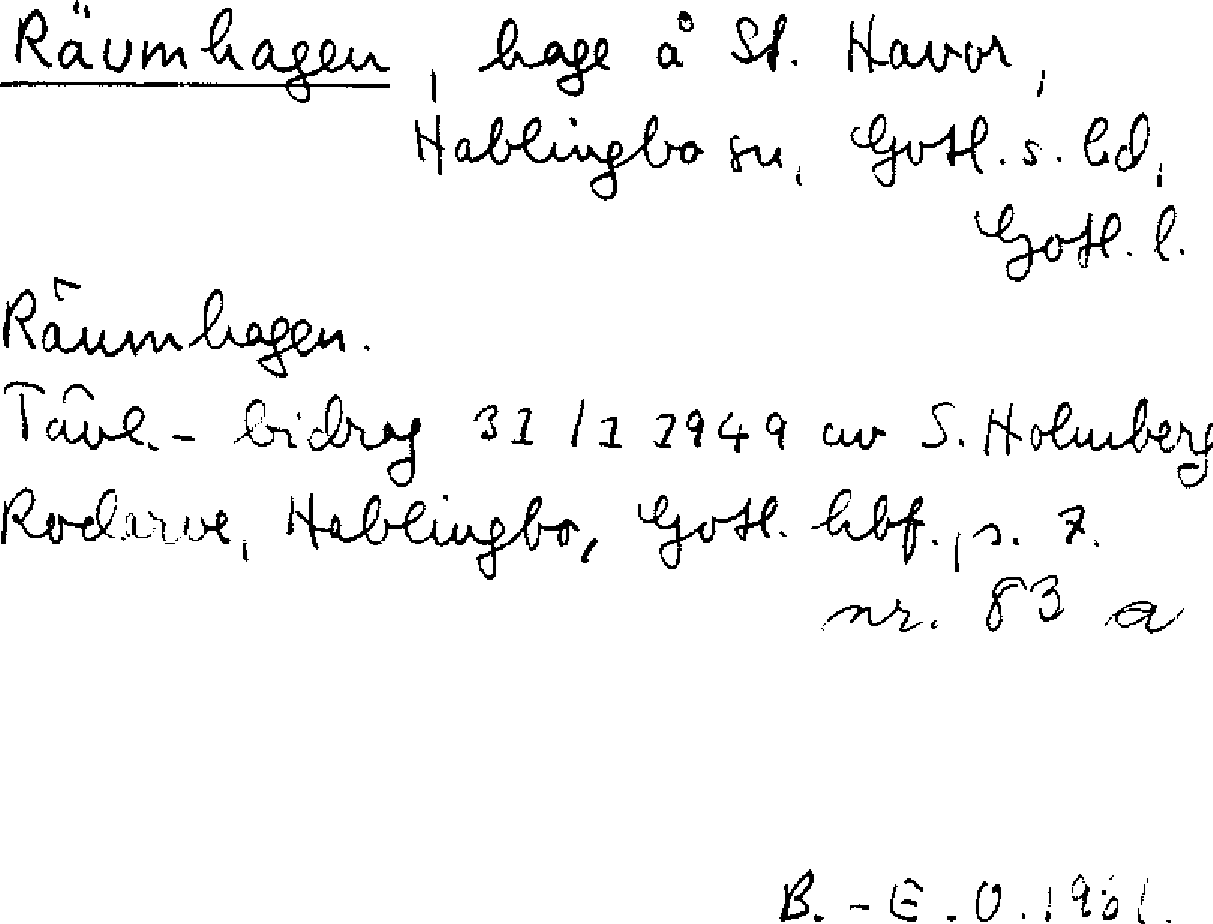 Räumhagen, hage å St. Havor,
Hablingbo sn, Gotl. s. hd,
Gotl. l.
Räumhagen.
Tävl.- bidrag 31/1 1949 av S. Holmberg
Rodarve, Hablingbo, Gotl. hbf., s. 7.
nr. 83 a
B.-E. O. 1961.